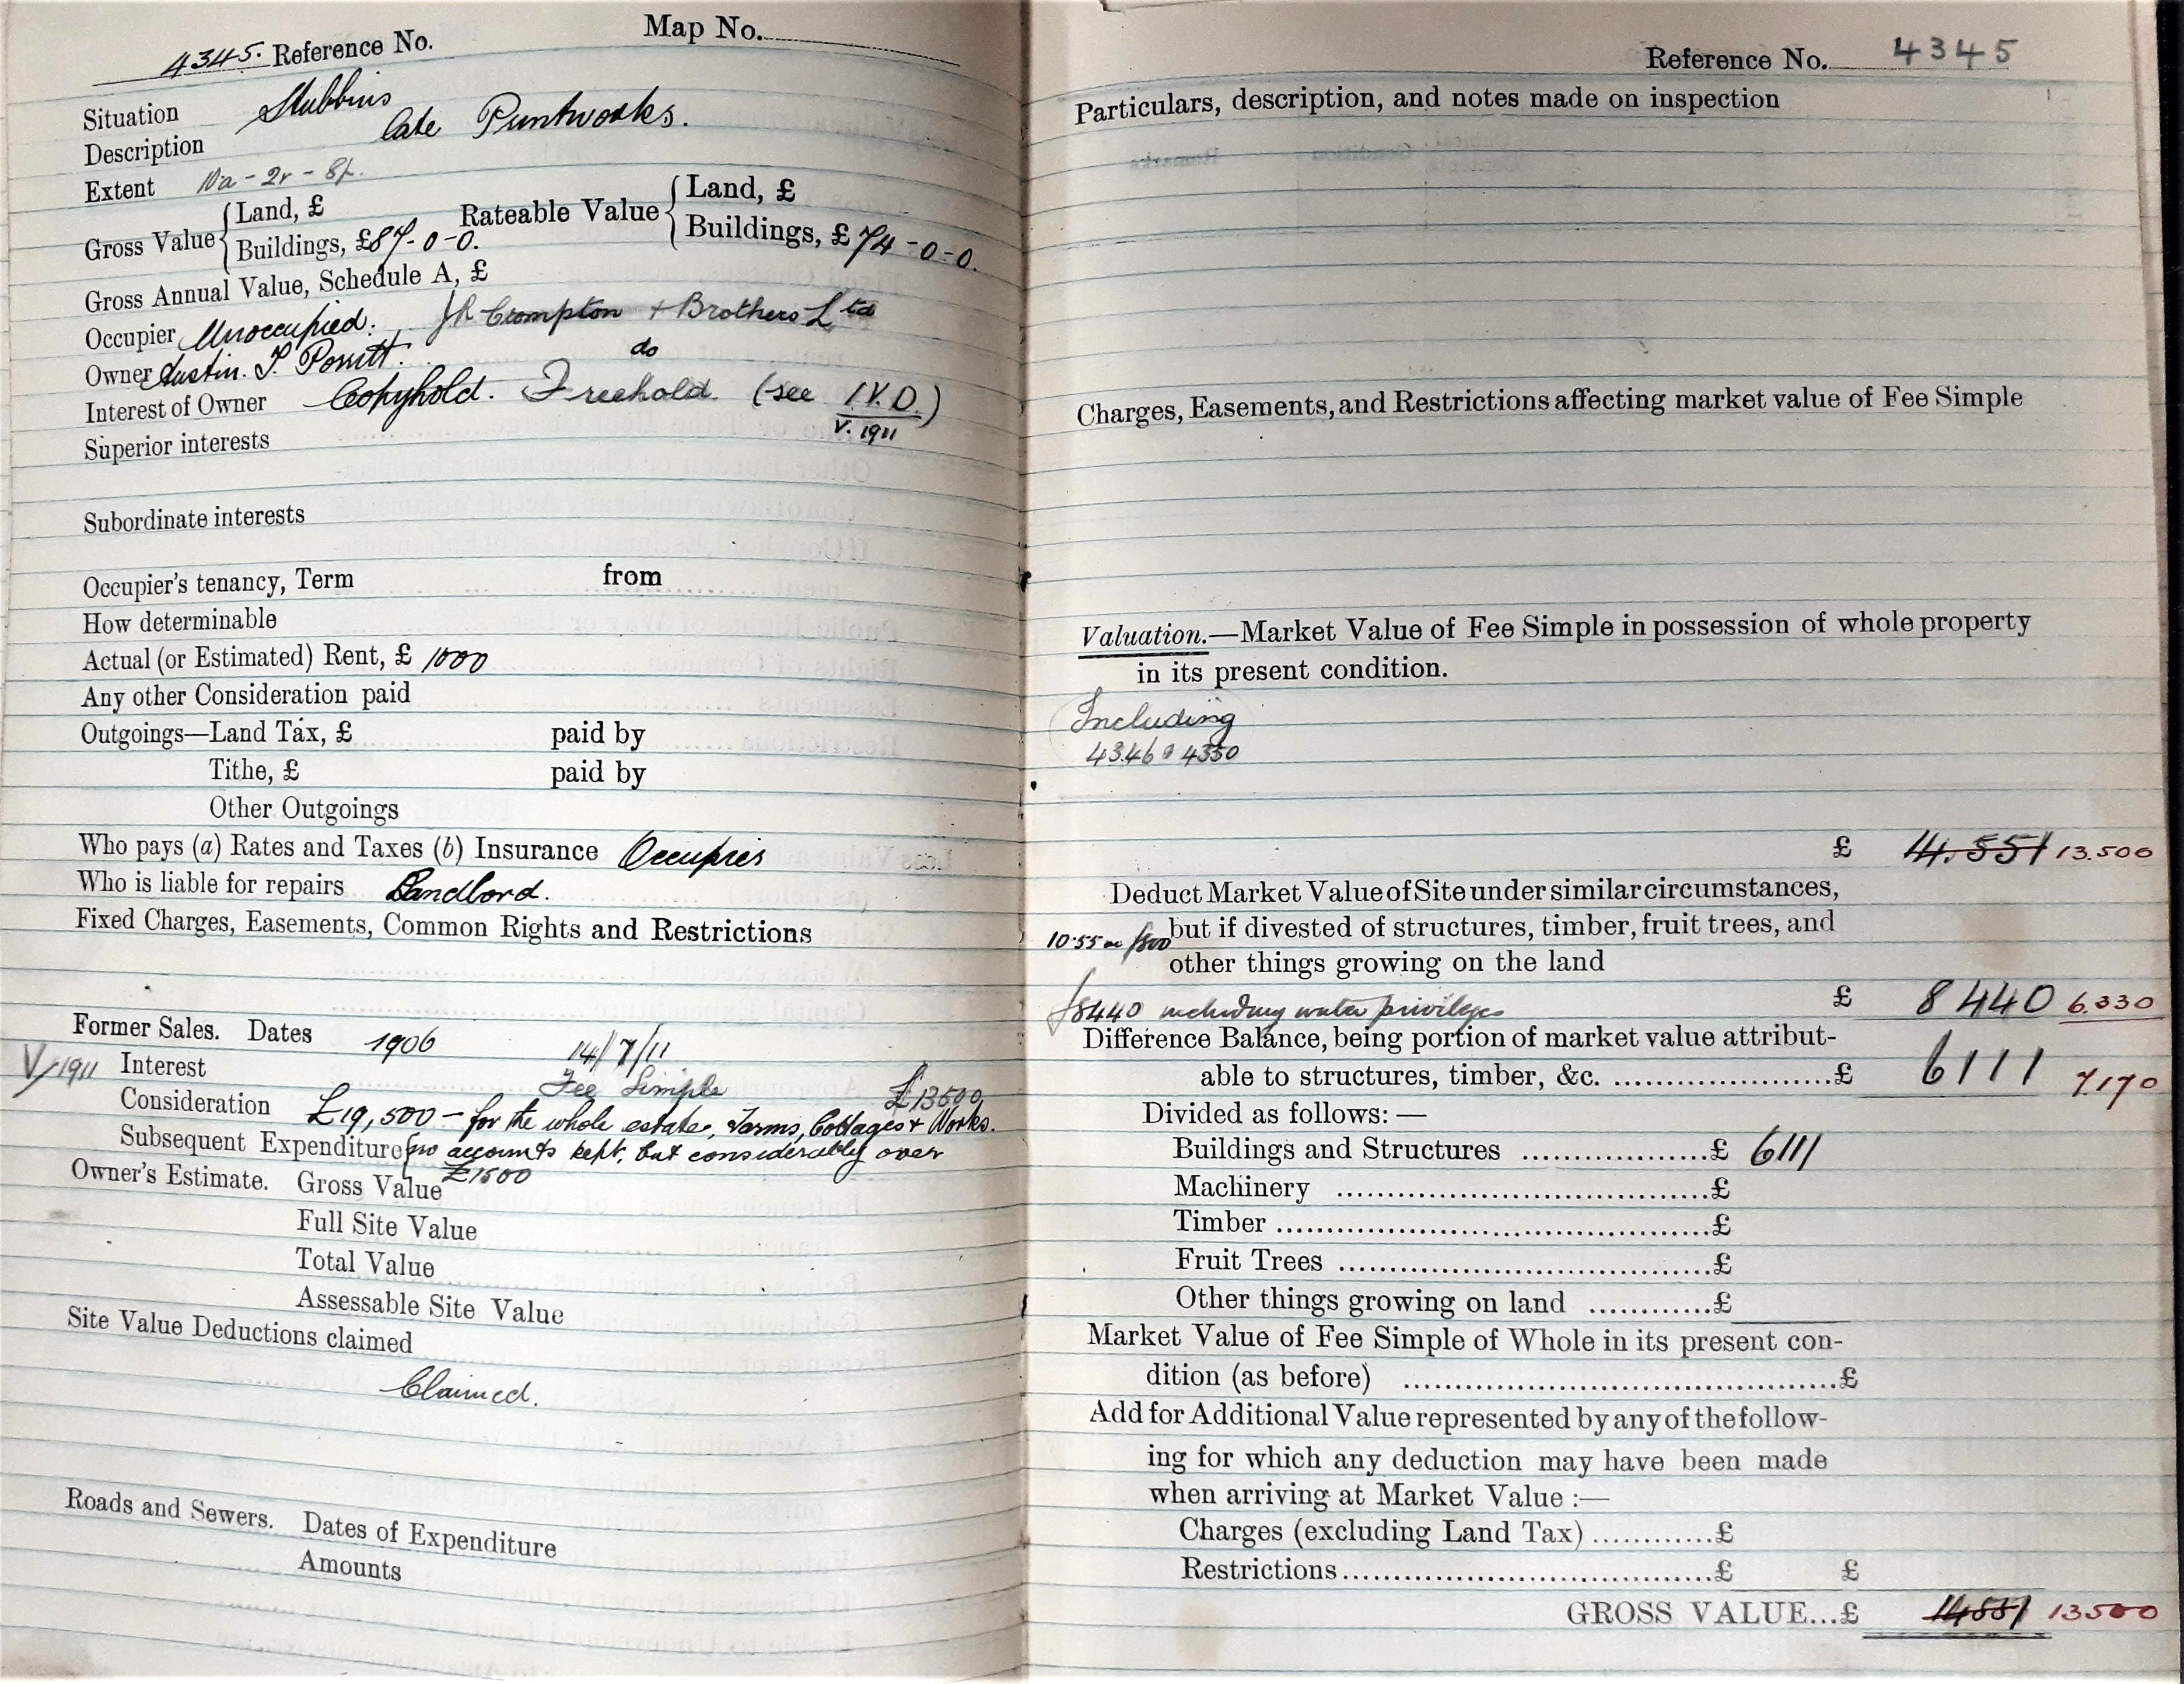 4345. Reference No. Map No.
Situation Stubbins
Description late Printworks.
Extent 10a - 2r - 8p.
Gross Value { Land, £
Buildings, £87-0-0.
Rateable Value { Land, £
Buildings, £74-0-0.
Gross Annual Value, Schedule A, £
Occupier Unoccupied. JR Crompton + Brothers Ltd
Owner Austin. T. Porritt. do
Interest of Owner Copyhold. Freehold (see I.V.D.)
V. 1911
Superior interests
Subordinate interests
Occupier's tenancy, Term from
How determinable
Actual (or Estimated) Rent, £ 1000
Any other Consideration paid
Outgoings—Land Tax, £ paid by
Tithe, £ paid by
Other Outgoings
Who pays (a) Rates and Taxes (b) Insurance Occupier
Who is liable for repairs Landlord.
Fixed Charges, Easements, Common Rights and Restrictions
Former Sales. Dates 1906 14/7/11
V/1911 Interest Fee Simple £13500
Consideration £19,500 – for the whole estate, Farms, Cottages & Works.
Subsequent Expenditure {no accounts kept, but considerably over
£1500
Owner's Estimate. Gross Value
Full Site Value
Total Value
Assessable Site Value
Site Value Deductions claimed
Claimed.
Roads and Sewers. Dates of Expenditure
Amounts
Reference No. 4345
Particulars, description, and notes made on inspection
Charges, Easements, and Restrictions affecting market value of Fee Simple
Valuation.—Market Value of Fee Simple in possession of whole property
in its present condition.
Including
4346 4350
£ 14.551 13.500
Deduct Market Value of Site under similar circumstances,
but if divested of structures, timber, fruit trees, and
10.55 ac £800
other things growing on the land
£8440 including water privileges £ 8440 6.330
Difference Balance, being portion of market value attribut-
able to structures, timber, &c. ........................£ 6111 7.170
Divided as follows: —
Buildings and Structures ....................£ 6111
Machinery ........................................£
Timber ................................................£
Fruit Trees ........................................£
Other things growing on land ............£
Market Value of Fee Simple of Whole in its present con-
dition (as before) ................................................£
Add for Additional Value represented by any of the follow-
ing for which any deduction may have been made
when arriving at Market Value :—
Charges (excluding Land Tax) ............£
Restrictions........................................£ £
GROSS VALUE...£ 14551 13500